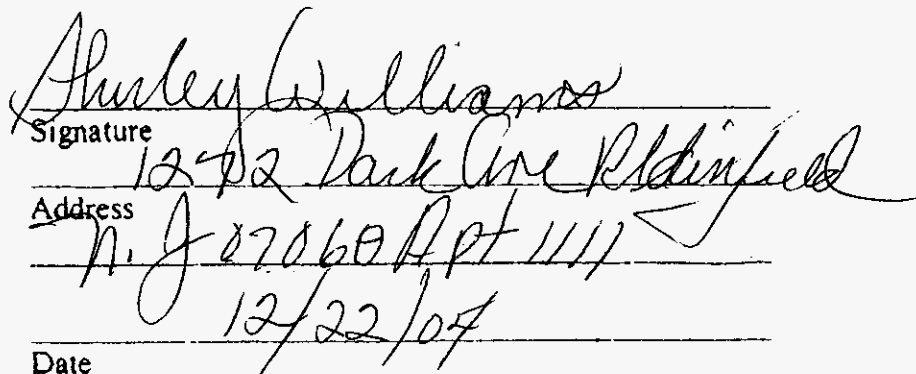 Shirley Williams
Signature
1272 Park Ave Plainfield
Address
N.J 07060 Apt 1111
12/22/04
Date